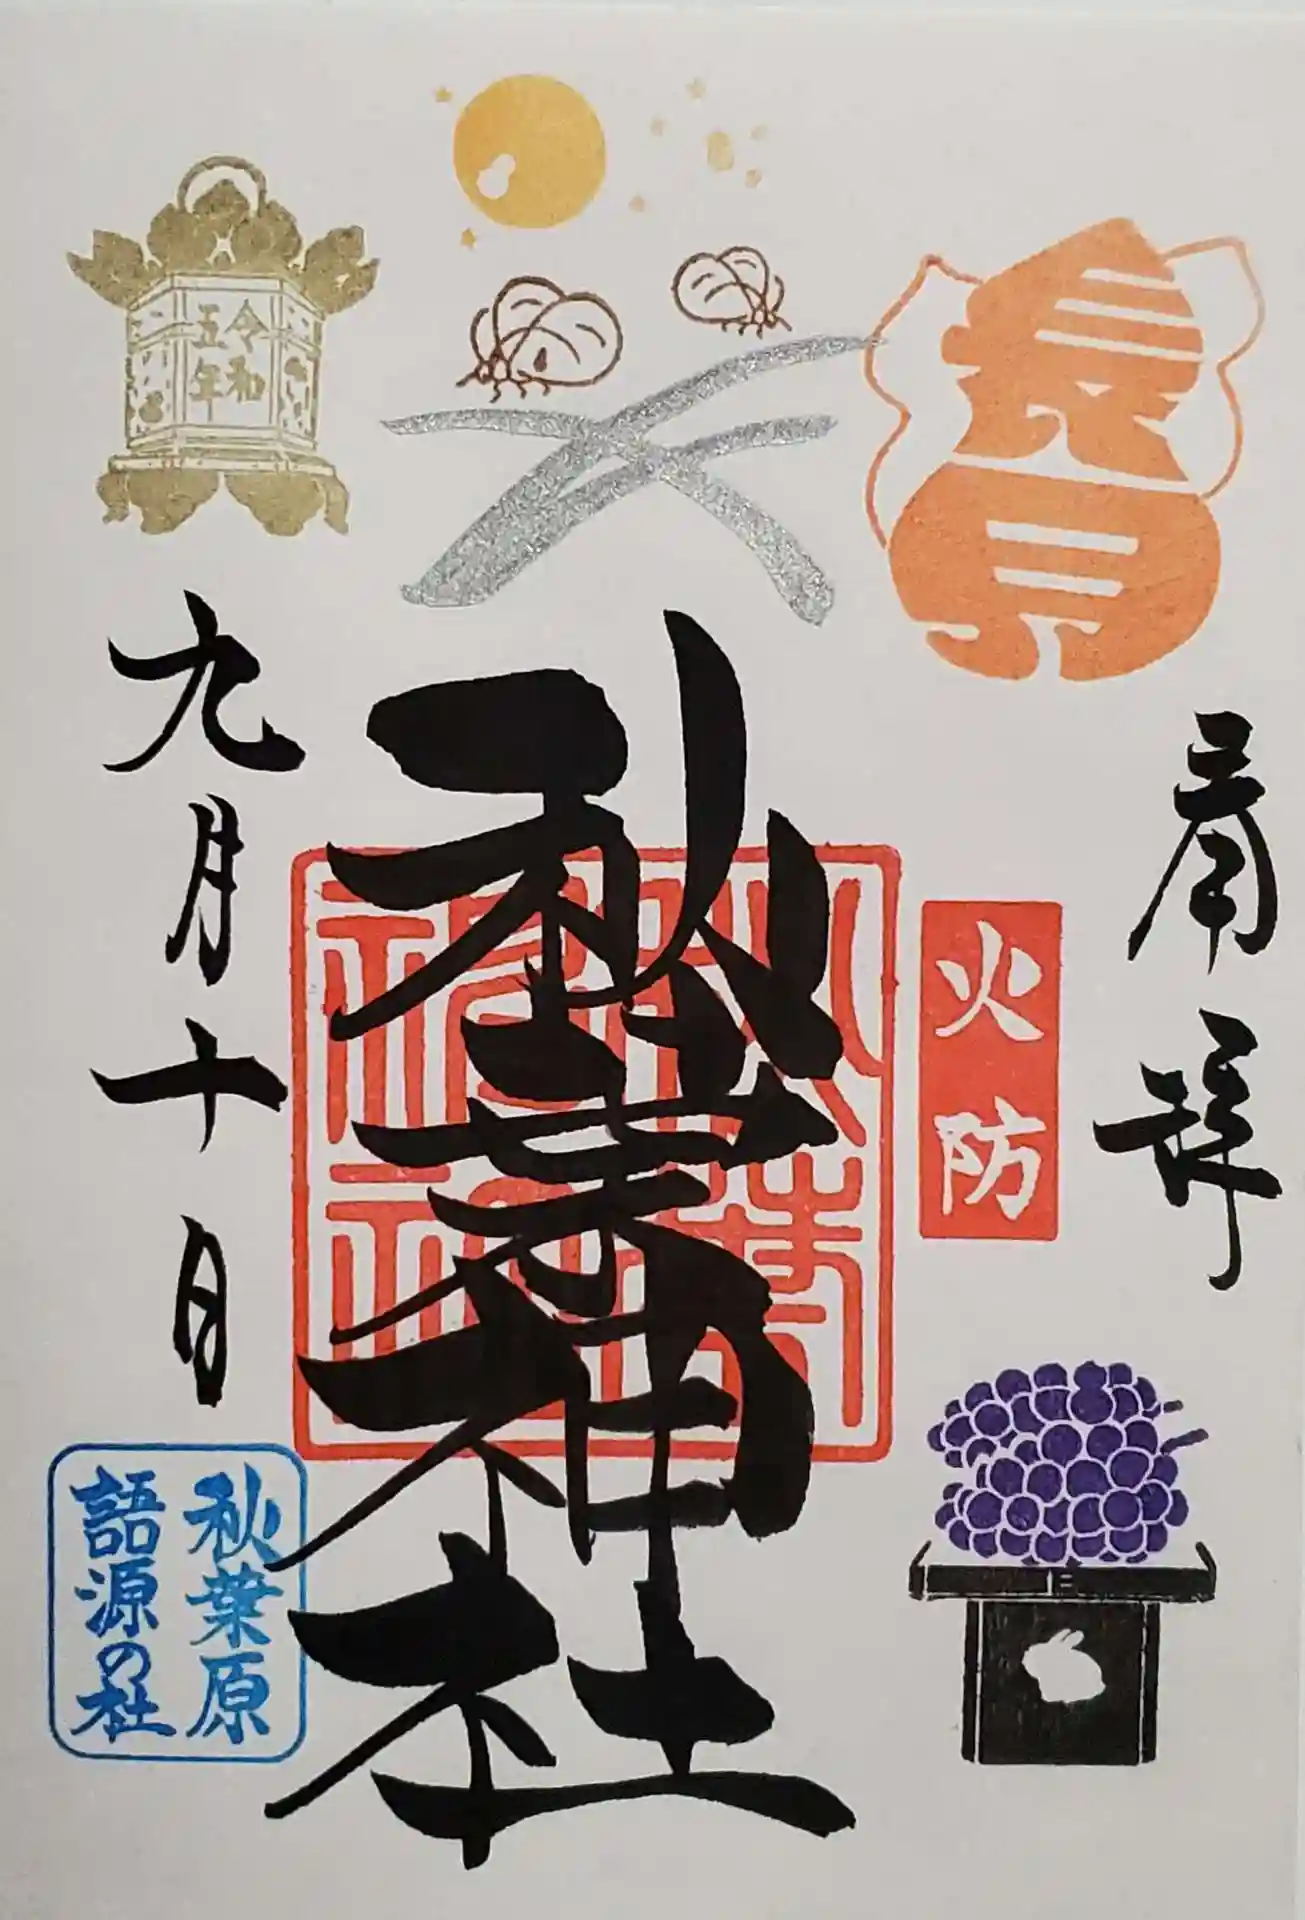 長月
斎拝
火防
秋葉神社
秋葉
神社
令和
五年
九月十日
秋葉原
語源の社